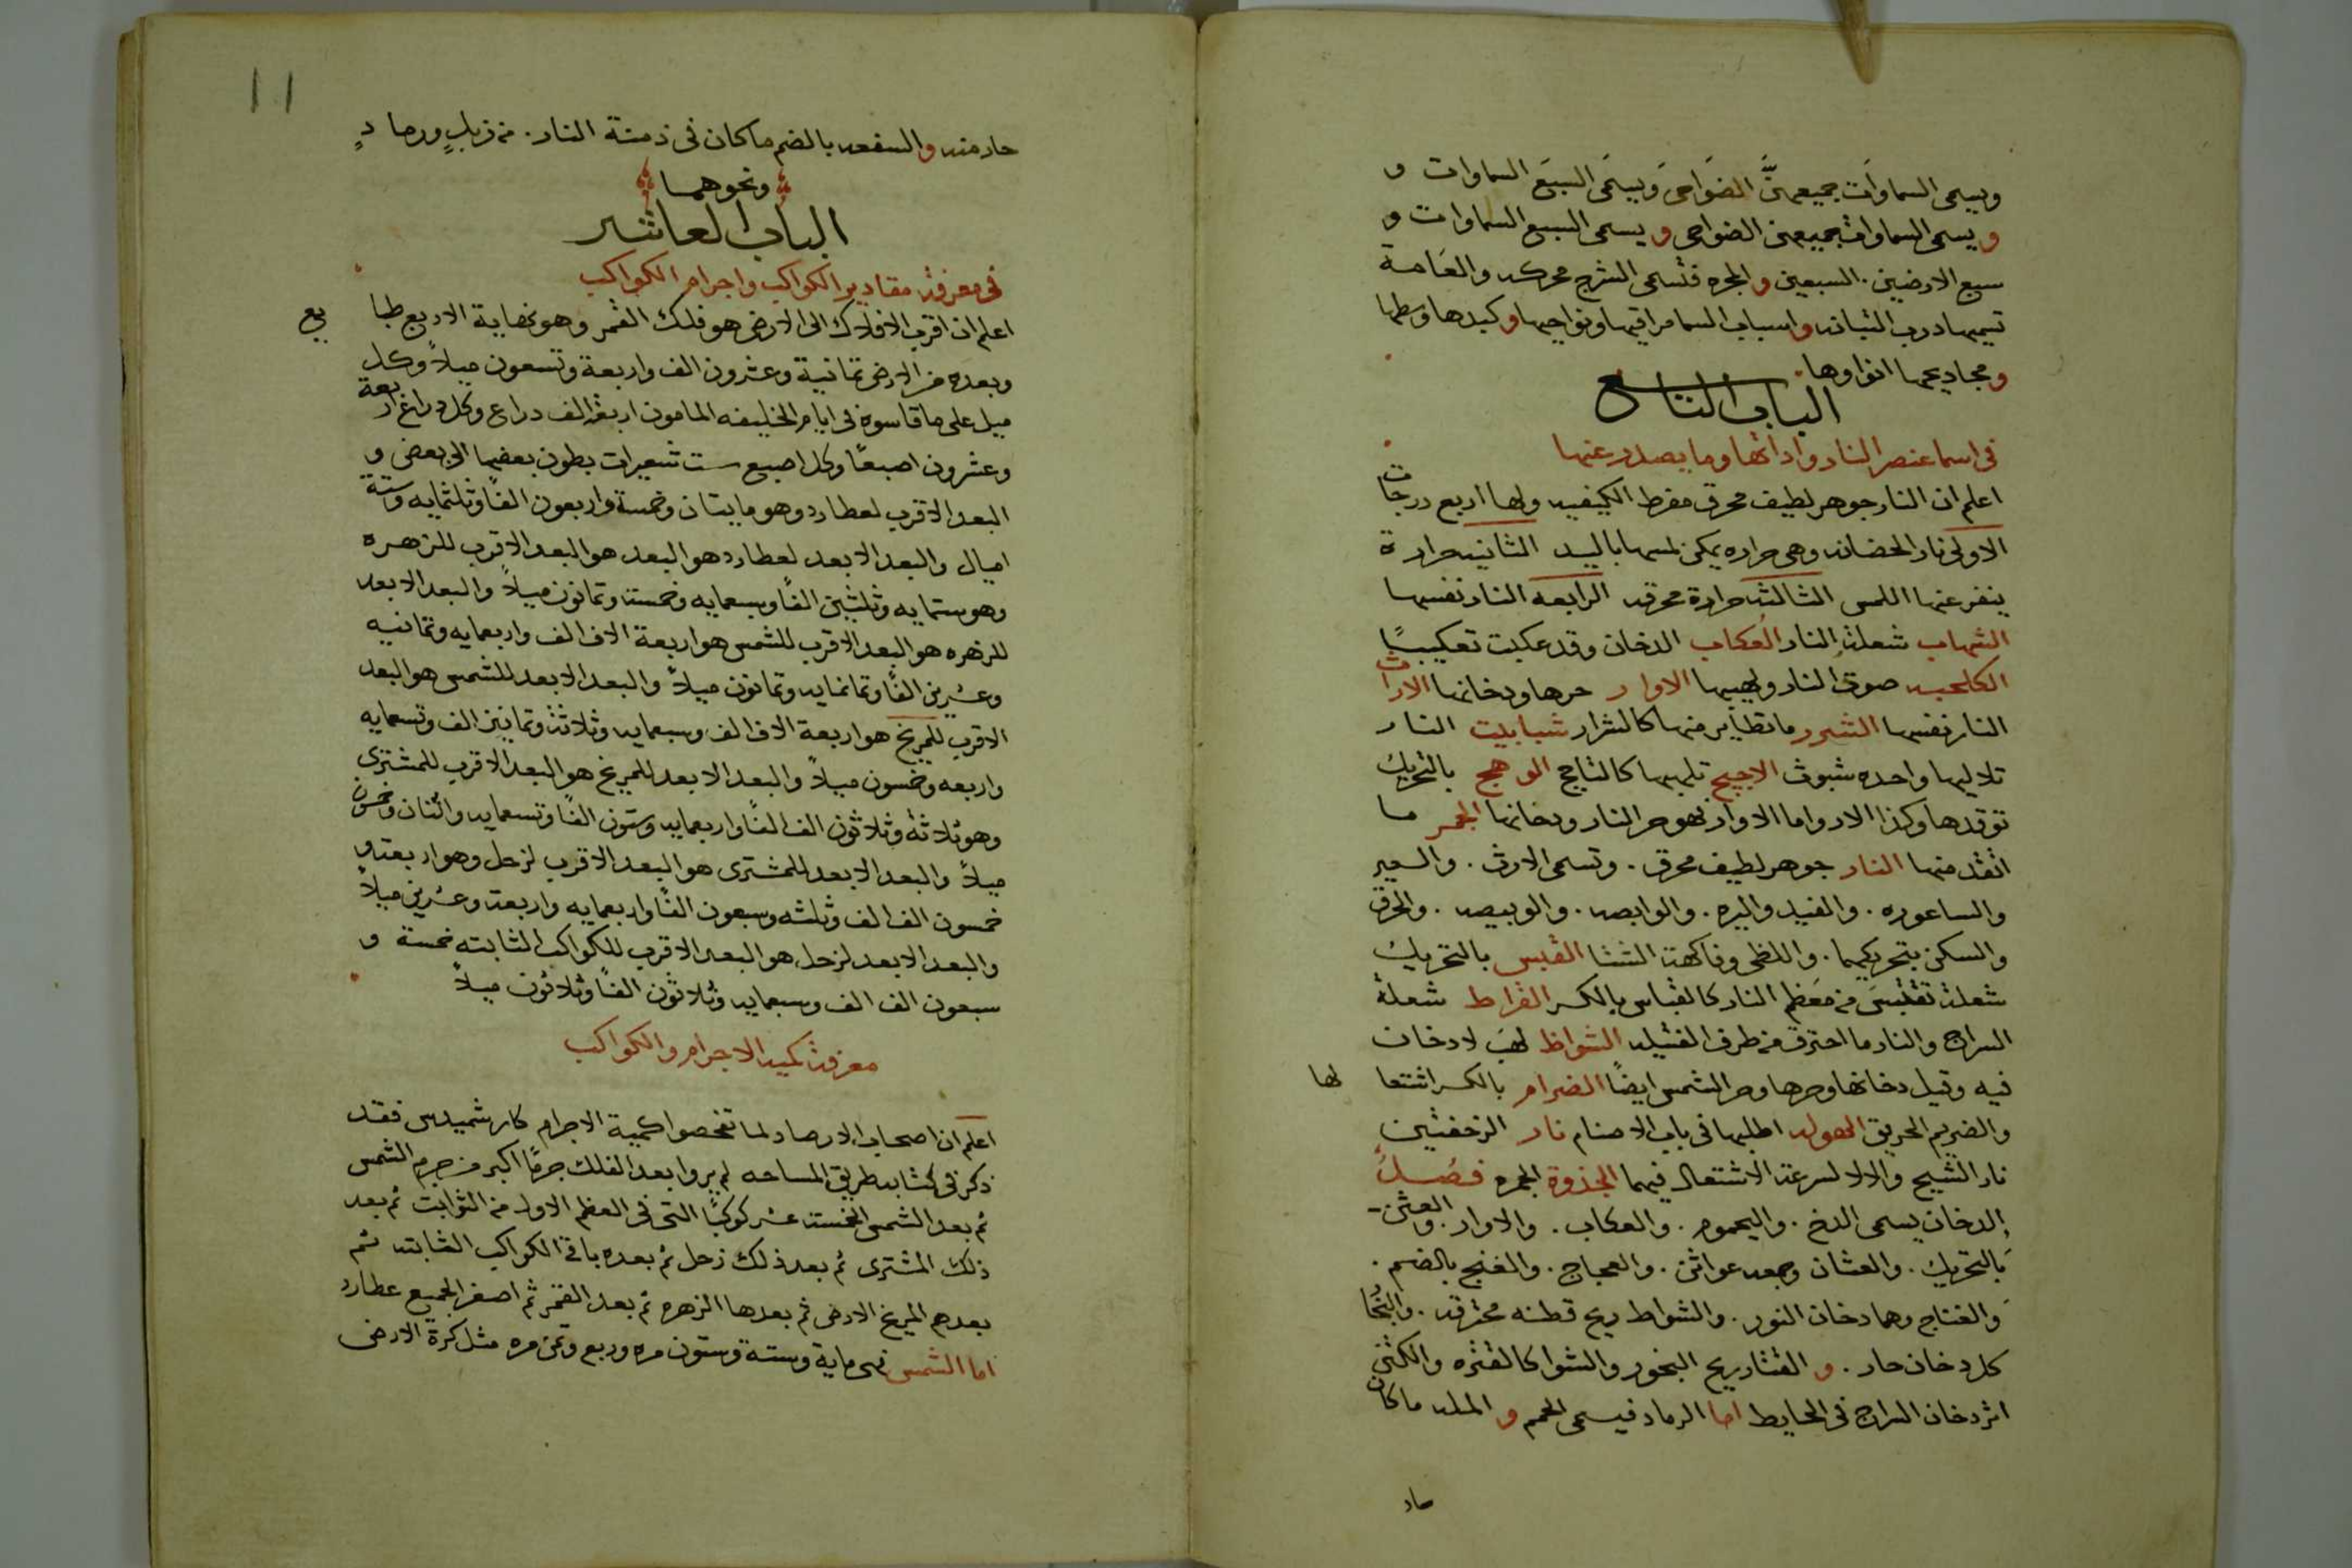 ويسمى السماوات جميعهنَّ الضواحى ويسمى السبع السماوات و
ويسمى السماوات جميعهن الضواحى ويسمى السبع السماوات و
سبع الارضين. السبعين والمجره فتسمى الشرج محركه والعامة
تسميها درب التبانه واسباب السما مراقيها ونواحيها وكبدها وسطها
ومجاديحها انواوها
الباب التاسع
فى اسما عنصر النار واداتها وما يصدر عنها
اعلم ان النار جوهر لطيف محرق مفرط الكيفيه ولها اربع درجات
الاولى نار الحضانه وهى حراره يمكن لمسها باليد الثانيه حرارة
ينفر عنها اللمس الثالثه حرارة محرقه الرابعه النار نفسها
الشهاب شعلة النار العكاب الدخان وقد عكبت تعكيبًا
الكلحبه صوت النار ولهيبها الاوار حرها ودخانها الارات
النار نفسها الشرر ما تطاير منها كالشرار شبابيت النار
تلاليها واحده شبوت الاجيج تلهبها كالتاجج الوهج بالتحريك
توقدها وكذا الار واما الاوار فهو حر النار ودخانها الجمر ما
اتقد منها النار جوهر لطيف محرق. وتسمى الارث. والسعير
والساعوره. والفيد واليره. والوابصه. والوبيصه. والحرق
والسكن بتحريكهما. واللظى وفاكهة الشتا القبس بالتحريك
شعلة تقتبس من معظم النار كالقباس بالكسر القراط شعلة
السراج والنار ما احترق من طرف الفتيله الشواظ لهب لا دخان
فيه وقيل دخانها وحرها وحر الشمس ايضًا الضرام بالكسر اشتعالها
والضريم الحريق الهوله اطلبها فى باب الاصنام نار الزحفتين
نار الشيح والالا لسرعة الاشتعال فيهما الجذوة الجمره فصل
الدخان يسمى الدخ. واليحموم. والعكاب. والاوار. والعثن
بالتحريك. والعثان وجمعه عواثن. والعجاج. والغنج بالضم.
والغناج وهما دخان النور. والشواط ريح قطنه محترقه. والنحا
كل دخان حار. و القتار ريح البخور والشوا كالقتره والكتن
اثر دخان السراج فى الحايط اما الرماد فيسمى الحمم و المله ما كان
حار
11
حار منه والسفعه بالضم ما كان فى دمنة النار. من زبلٍ ورمادٍ
ونحوهما
الباب العاشر
فى معرفة مقادير الكواكب واجرام الكواكب
اعلم ان اقرب الافلاك الى الارض هو فلك القمر وهو نهاية الاربع طبايع
وبعده من الارض ثمانية وعشرون الف واربعة وتسعون ميلاً وكل
ميل على ما قاسوه فى ايام الخليفه المامون اربعة الف دراع وكل دراع اربعة
وعشرون اصبعًا وكل اصبع ست شعيرات بطون بعضها الى بعض و
البعد الاقرب لعطارد وهو مايتان وخمسة واربعون الفًا وثلثمايه وستة
اميال والبعد الابعد لعطارد هو البعد هو البعد الاقرب للزهره
وهو ستمايه وثلثين الفًا وسبعمايه وخمسة وثمانون ميلاً والبعد الابعد
للزهره هو البعد الاقرب للشمس هو اربعة الاف الف واربعمايه وثمانيه
وعشرين الفًا وثمانمايه وثمانون ميلاً والبعد الابعد للشمس هو البعد
الاقرب للمريخ هو اربعة الاف الف وسبعمايه وثلاثة وثمانين الف وتسعمايه
واربعه وخمسون ميلاً والبعد الابعد للمريخ هو البعد الاقرب للمشترى
وهو ثلاثة وثلاثون الف الفًا واربعمايه وستون الفًا وتسعمايه واثنان وخمسون
ميلاً والبعد الابعد للمشترى هو البعد الاقرب لزحل وهو اربعة و
خمسون الف الف وثلثه وسبعون الفًا واربعمايه واربعة وعشرين ميلاً
والبعد الابعد لزحل هو البعد الاقرب للكواكب الثابته خمسة و
سبعون الف الف وسبعمايه وثلاثون الفًا وثلاثون ميلاً
معرفة كمية الاجرام والكواكب
اعلم ان اصحاب الارصاد لما تفحصوا كمية الاجرام كارشميدس فقد
ذكر فى كتابه طريق المساحه لم يروا بعد الفلك جرمًا اكبر من جرم الشمس
ثم بعد الشمس الخمسة عشر كوكبًا التى فى العظم الاول من الثوابت ثم بعد
ذلك المشترى ثم بعد ذلك زحل ثم بعده باقى الكواكب الثابته ثم
بعدهم المريخ الارض ثم بعدها الزهره ثم بعد القمر ثم اصغر الجميع عطارد
اما الشمس فهى ماية وسته وستون مره وربع وثمن مره مثل كرة الارض